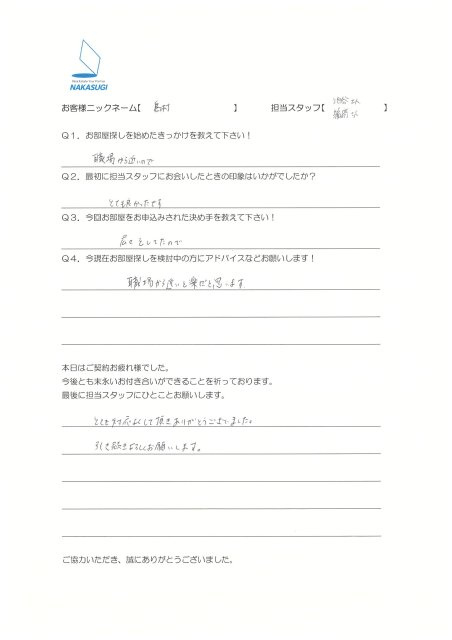 NAKASUGI
お客様ニックネーム【 島村 】 担当スタッフ【 さん さん 】
Q1．お部屋探しを始めたきっかけを教えて下さい！
職場から近いので
Q2．最初に担当スタッフにお会いしたときの印象はいかがでしたか？
とても良かったです
Q3．今回お部屋をお申込みされた決め手を教えて下さい！
をしてたので
Q4．今現在お部屋探しを検討中の方にアドバイスなどお願いします！
職場から近いと楽だと思います
本日はご契約お疲れ様でした。
今後とも末永いお付き合いができることを祈っております。
最後に担当スタッフにひとことお願いします。
とても対応よくして頂きありがとうございました。
引き続きよろしくお願いします。
ご協力いただき、誠にありがとうございました。